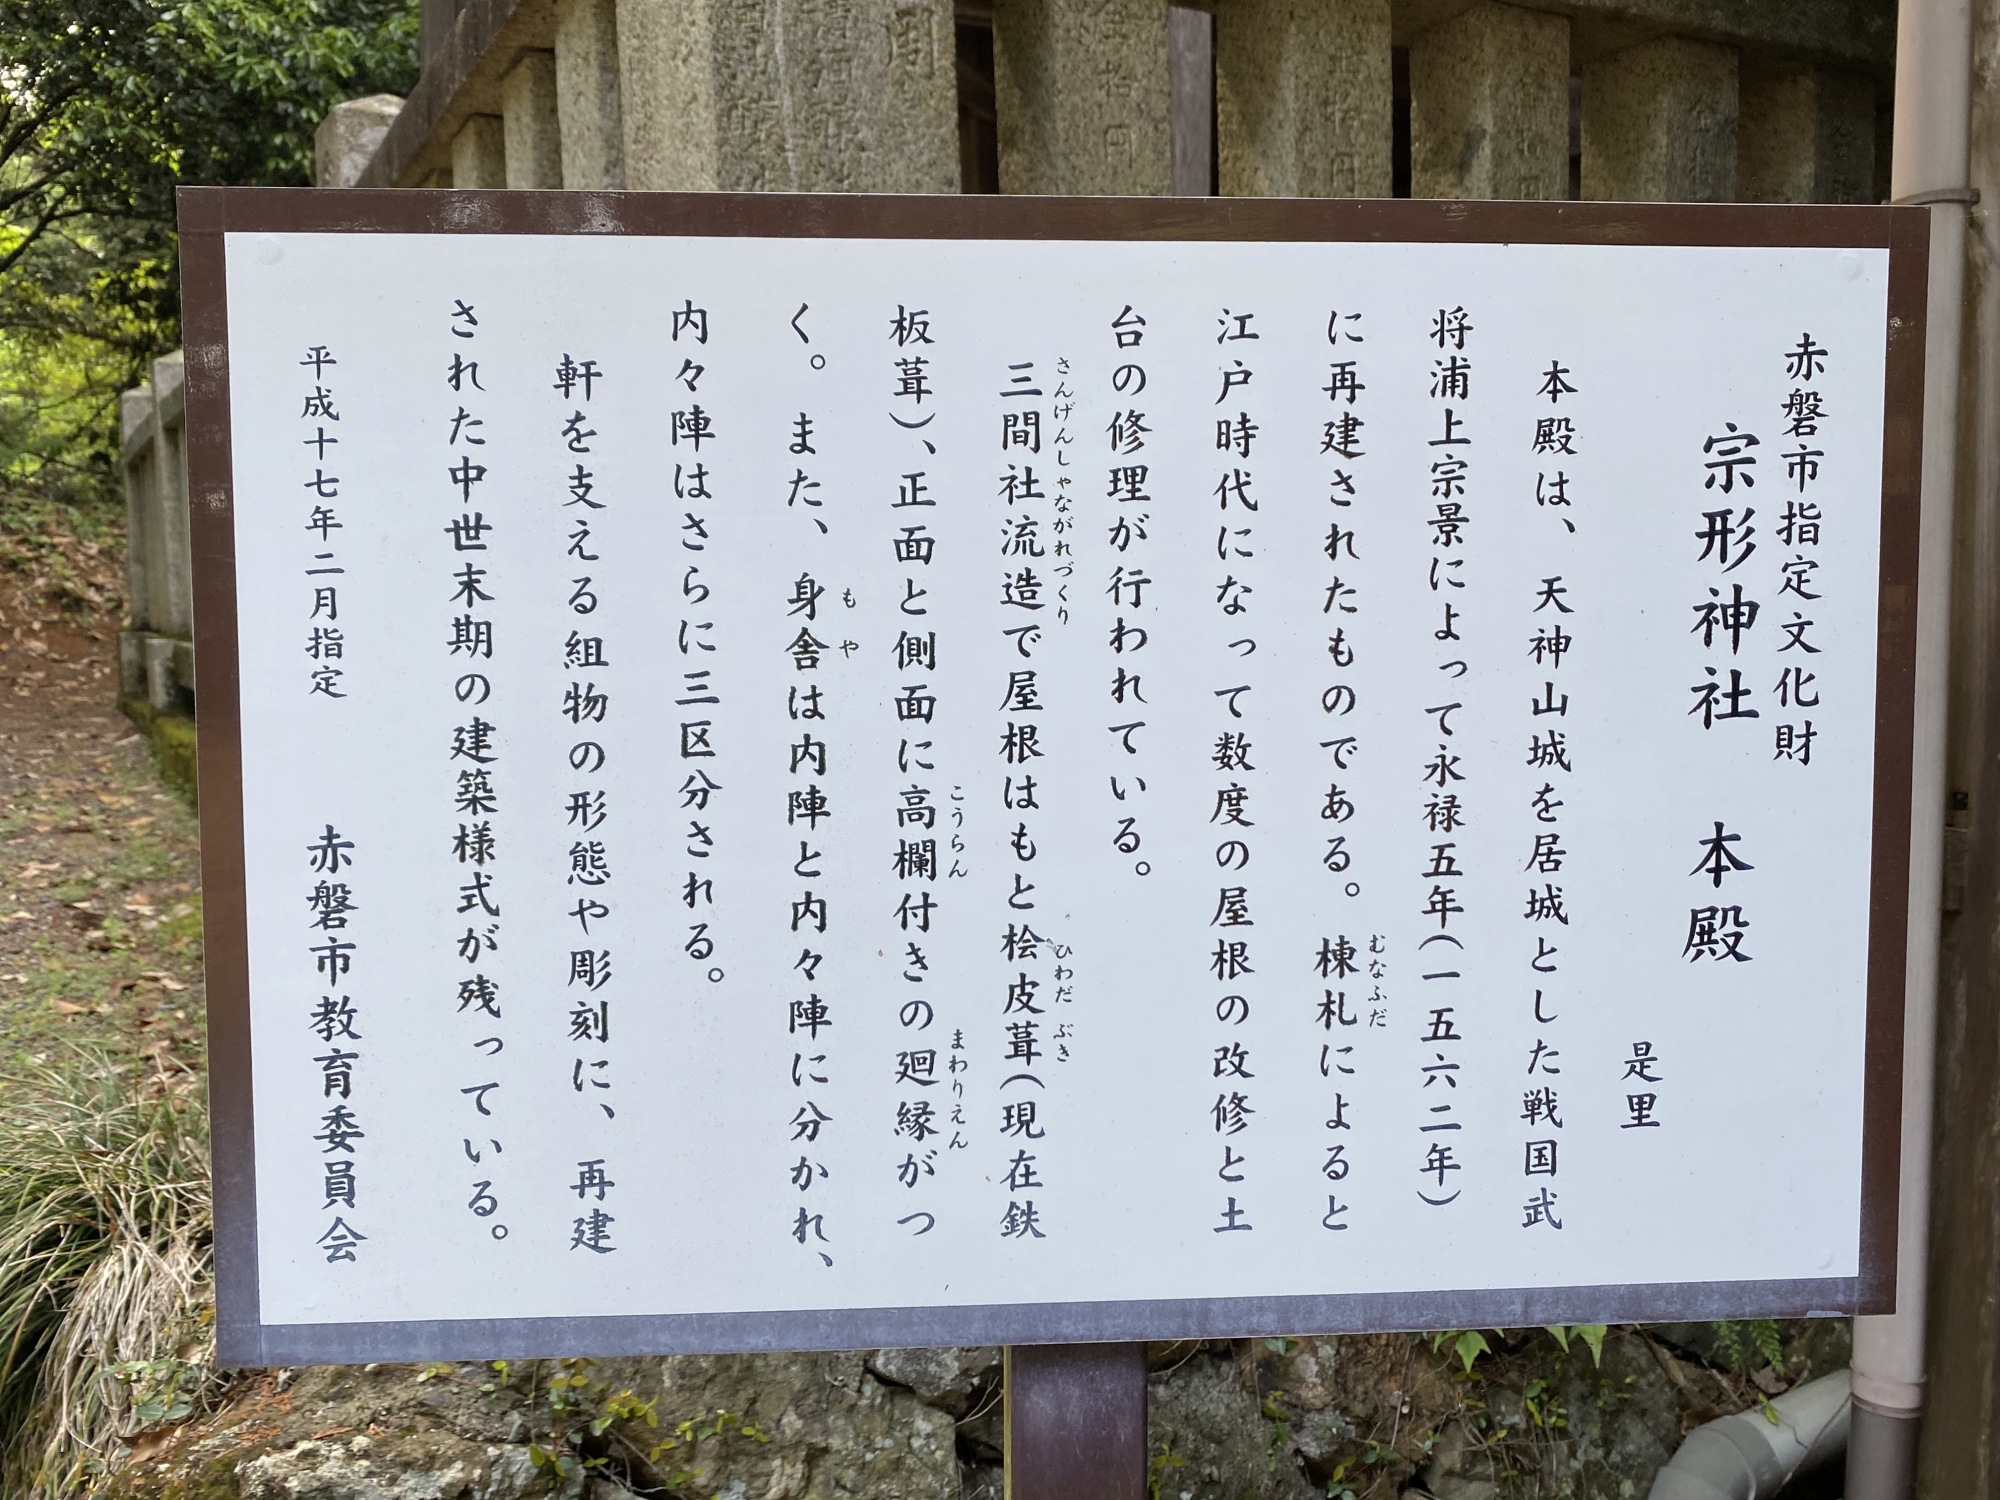 赤磐市指定文化財
宗形神社　本殿
是里
本殿は、天神山城を居城とした戦国武
将浦上宗景によって永禄五年(一五六二年)
に再建されたものである。棟札によると
むなふだ
江戸時代になって数度の屋根の改修と土
台の修理が行われている。
三間社流造で屋根はもと桧皮葺(現在鉄
さんげんしゃながれづくり
ひわだぶき
板葺)、正面と側面に高欄付きの廻縁がつ
こうらん
まわりえん
く。また、身舎は内陣と内々陣に分かれ、
もや
内々陣はさらに三区分される。
軒を支える組物の形態や彫刻に、再建
された中世末期の建築様式が残っている。
平成十七年二月指定
赤磐市教育委員会